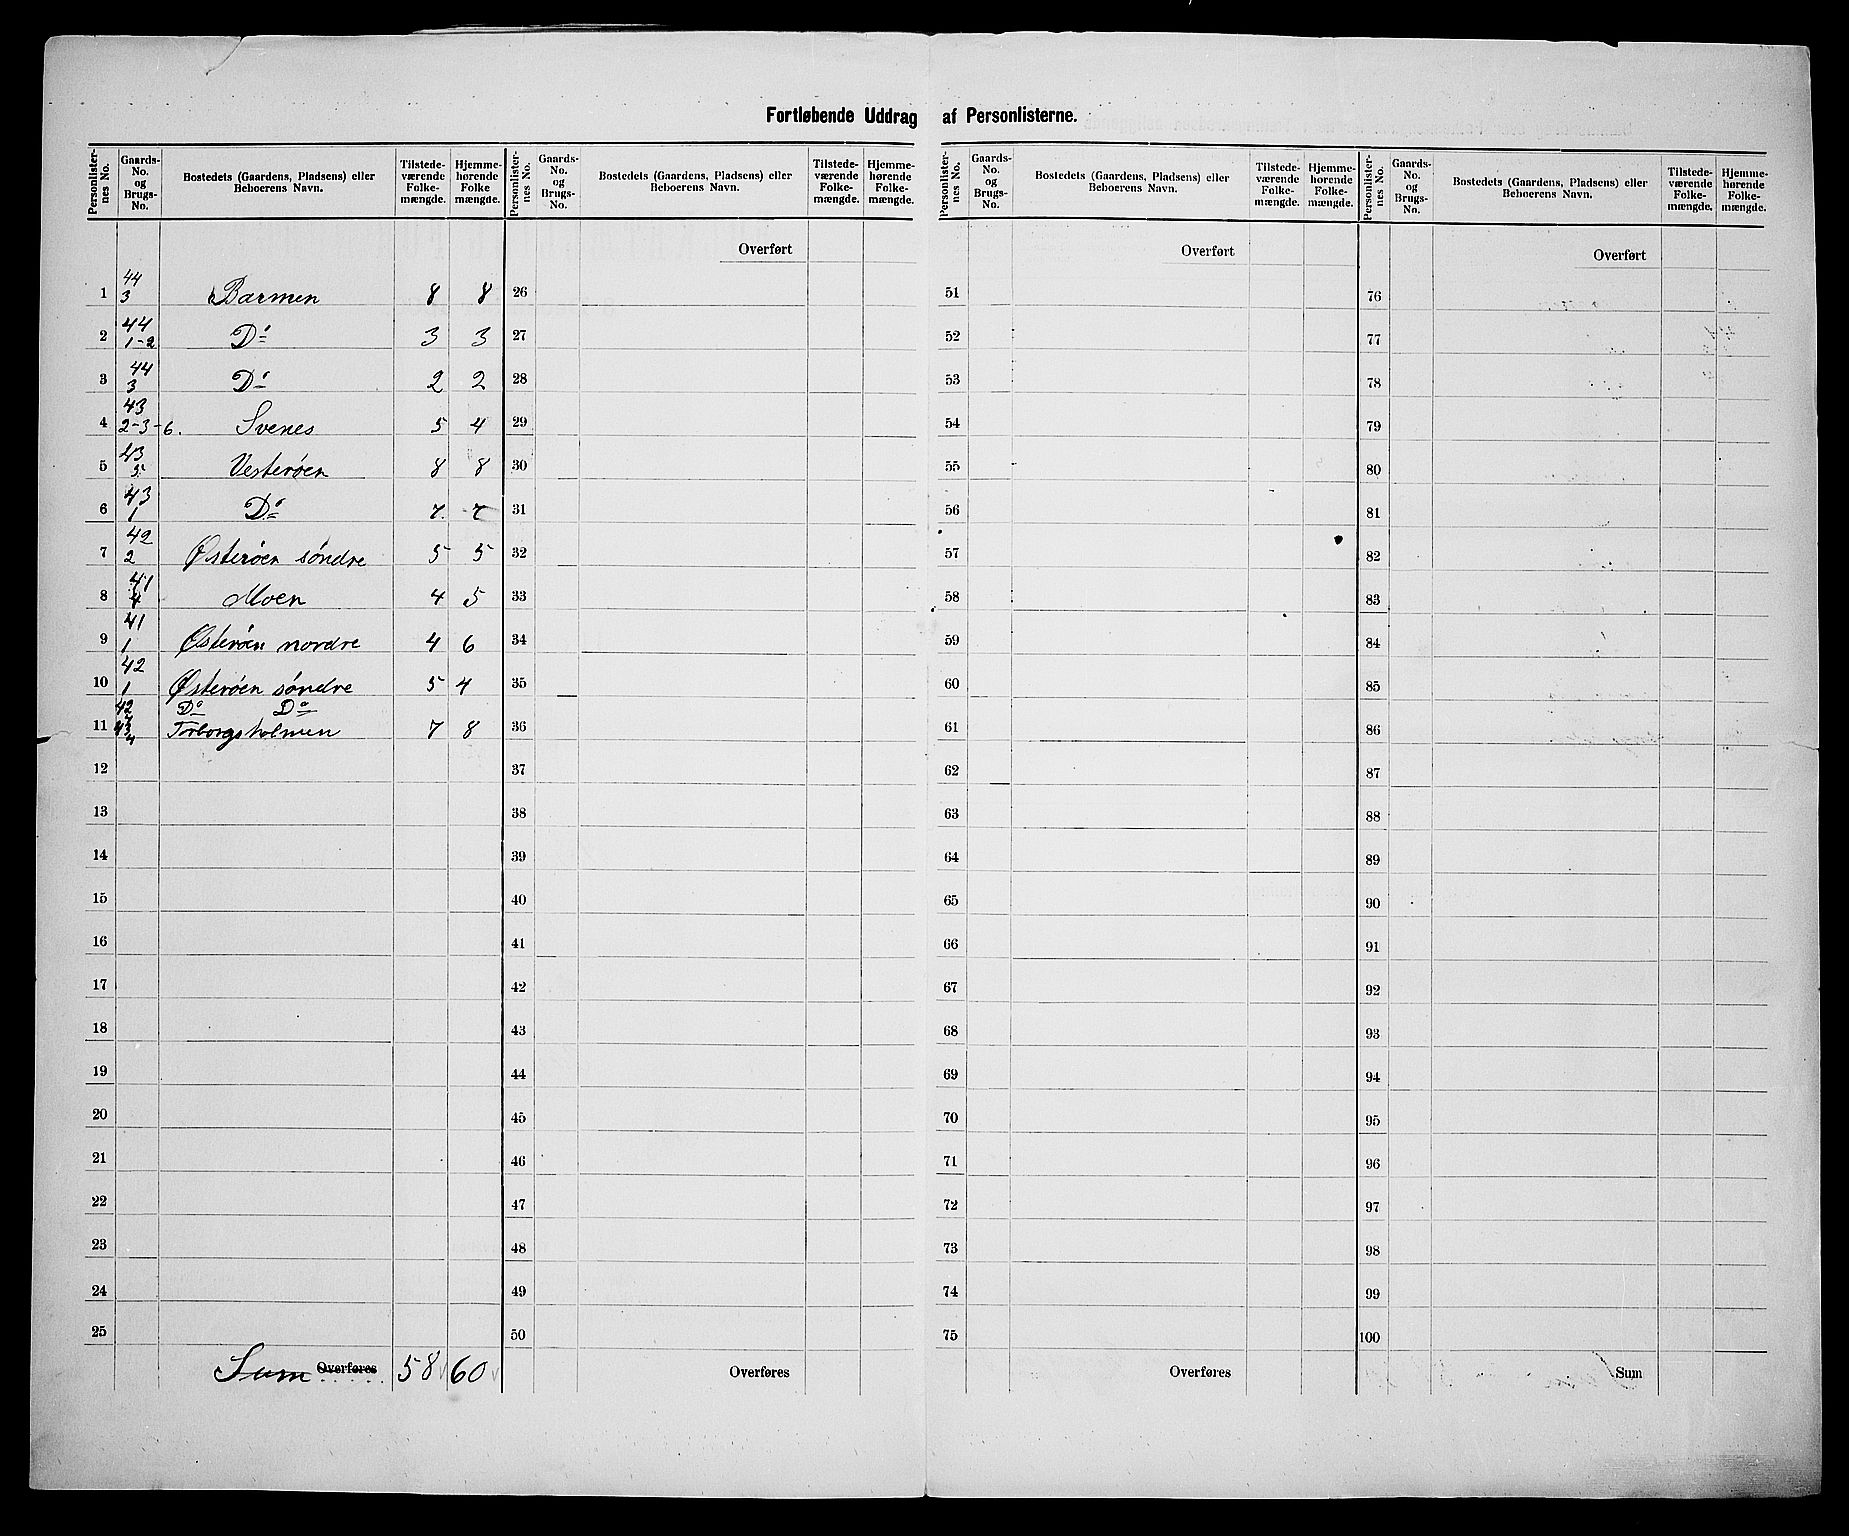 Fortløbende Uddrag af Personlisterne.
Personlisternes No. | Gaards-No. og Brugs-No. | Bostedets (Gaardens, Pladsens) eller Beboerens Navn. | Tilstedeværende Folkemængde. | Hjemmehørende Folkemængde.
1 | 44 3 | Barmen | 8 | 8
2 | 44 1-2 | Do | 3 | 3
3 | 44 3 | Do | 2 | 2
4 | 43 2-3-6. | Svenes | 5 | 4
5 | 43 5 | Vesterøen | 8 | 8
6 | 43 1 | Do | 7. | 7
7 | 42 2 | Østerøen söndre | 5 | 5
8 | 41 4 | Moen | 4 | 5
9 | 41 1 | Østerøen nordre | 4 | 6
10 | 42 1 | Østerøen söndre | 5 | 4
42 | Do Do
11 | 43 4 | Torborgsholmen | 7 | 8
12
13
14
15
16
17
18
19
20
21
22
23
24
25
Sum Overføres | 58 | 60
Personlisternes No. | Gaards-No. og Brugs-No. | Bostedets (Gaardens, Pladsens) eller Beboerens Navn. | Tilstedeværende Folkemængde. | Hjemmehørende Folkemængde.
Overført
26
27
28
29
30
31
32
33
34
35
36
37
38
39
40
41
42
43
44
45
46
47
48
49
50
Overføres
Personlisternes No. | Gaards-No. og Brugs-No. | Bostedets (Gaardens, Pladsens) eller Beboerens Navn. | Tilstedeværende Folkemængde. | Hjemmehørende Folkemængde.
Overført
51
52
53
54
55
56
57
58
59
60
61
62
63
64
65
66
67
68
69
70
71
72
73
74
75
Overføres
Personlisternes No. | Gaards-No. og Brugs-No. | Bostedets (Gaardens, Pladsens) eller Beboerens Navn. | Tilstedeværende Folkemængde. | Hjemmehørende Folkemængde.
Overført
76
77
78
79
80
81
82
83
84
85
86
87
88
89
90
91
92
93
94
95
96
97
98
99
100
Sum